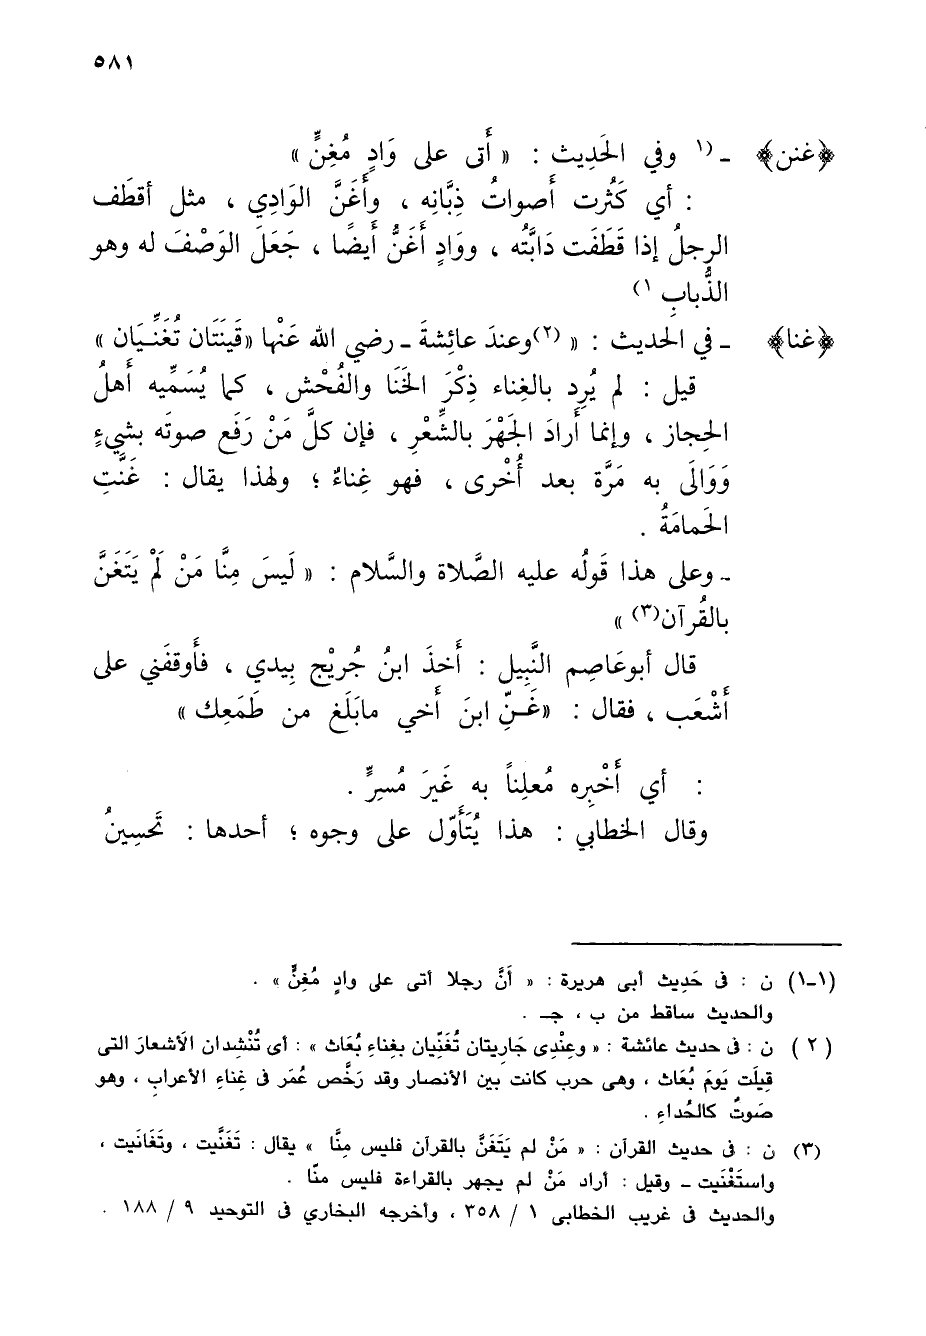 ٥٨١
﴿غنن﴾ ـ (١ وفي الحَدِيث : « أَتى على وَادٍ مُغِنٍّ »
: أي كَثُرت أَصواتُ ذِبَّانِه ، وأَغَنَّ الوَادِي ، مثل أقطَف
الرجلُ إذا قَطَفَت دَابَّتُه ، ووَادٍ أَغَنُّ أَيضًا ، جَعَلَ الوَصْفَ له وهو
الذُّبابِ ١)
﴿غنا﴾ ـ في الحديث : « (٢)وعندَ عائِشةَ ـ رضي الله عَنْها «قَينَتَان تُغَنِّيَان »
قيل : لم يُرِد بالغِناء ذِكْرَ الخَنَا والفُحْش ، كما يُسَمِّيه أَهلُ
الحِجاز ، وإنما أَرادَ الجَهْرَ بالشِّعْرِ ، فإن كلَّ مَنْ رَفَع صوتَه بشيءٍ
وَوَالَى به مَرَّة بعد أُخْرى ، فهو غِناءٌ ؛ ولهذا يقال : غَنَّتِ
الحَمامَةُ .
ـ وعلى هذا قَولُه عليه الصَّلاة والسَّلام : « لَيسَ مِنَّا مَنْ لَمْ يَتَغَنَّ
بالقُرآن(٣) »
قال أبوعَاصِم النَّبِيل : أَخذَ ابنُ جُريْج بِيدي ، فأَوقفَني على
أَشْعَب ، فقال : «غَـنِّ ابنَ أَخي مابَلَغ من طَمَعِك »
: أي أَخْبِره مُعلِناً به غَيرَ مُسِرٍّ .
وقال الخطابي : هذا يُتَأَوّل على وجوه ؛ أحدها : تَحسِينُ
(١-١) ن : فى حَدِيث أبى هريرة : « أَنَّ رجلا أتى على وادٍ مُغِنٍّ » .
والحديث ساقط من ب ، جـ .
(٢) ن : فى حديث عائشة : « وعِنْدِى جَاريتان تُغَنِّيان بغِناءِ بُعَاث » : أى تُنْشِدان الأشعارَ التى
قِيلَت يَومَ بُعَاث ، وهى حرب كانت بين الأنصار وقد رَخَّص عُمَر فى غِناءِ الأعراب ، وهو
صَوتٌ كالحُداءِ .
(٣) ن : فى حديث القرآن : « مَنْ لم يَتَغَنَّ بالقرآن فليس مِنَّا » يقال : تَغَنَّيت ، وتَغَانَيت ،
واستَغْنَيت ـ وقيل : أراد مَنْ لم يجهر بالقراءة فليس منّا .
والحديث فى غريب الخطابى ١ / ٣٥٨ ، وأخرجه البخاري فى التوحيد ٩ / ١٨٨ .